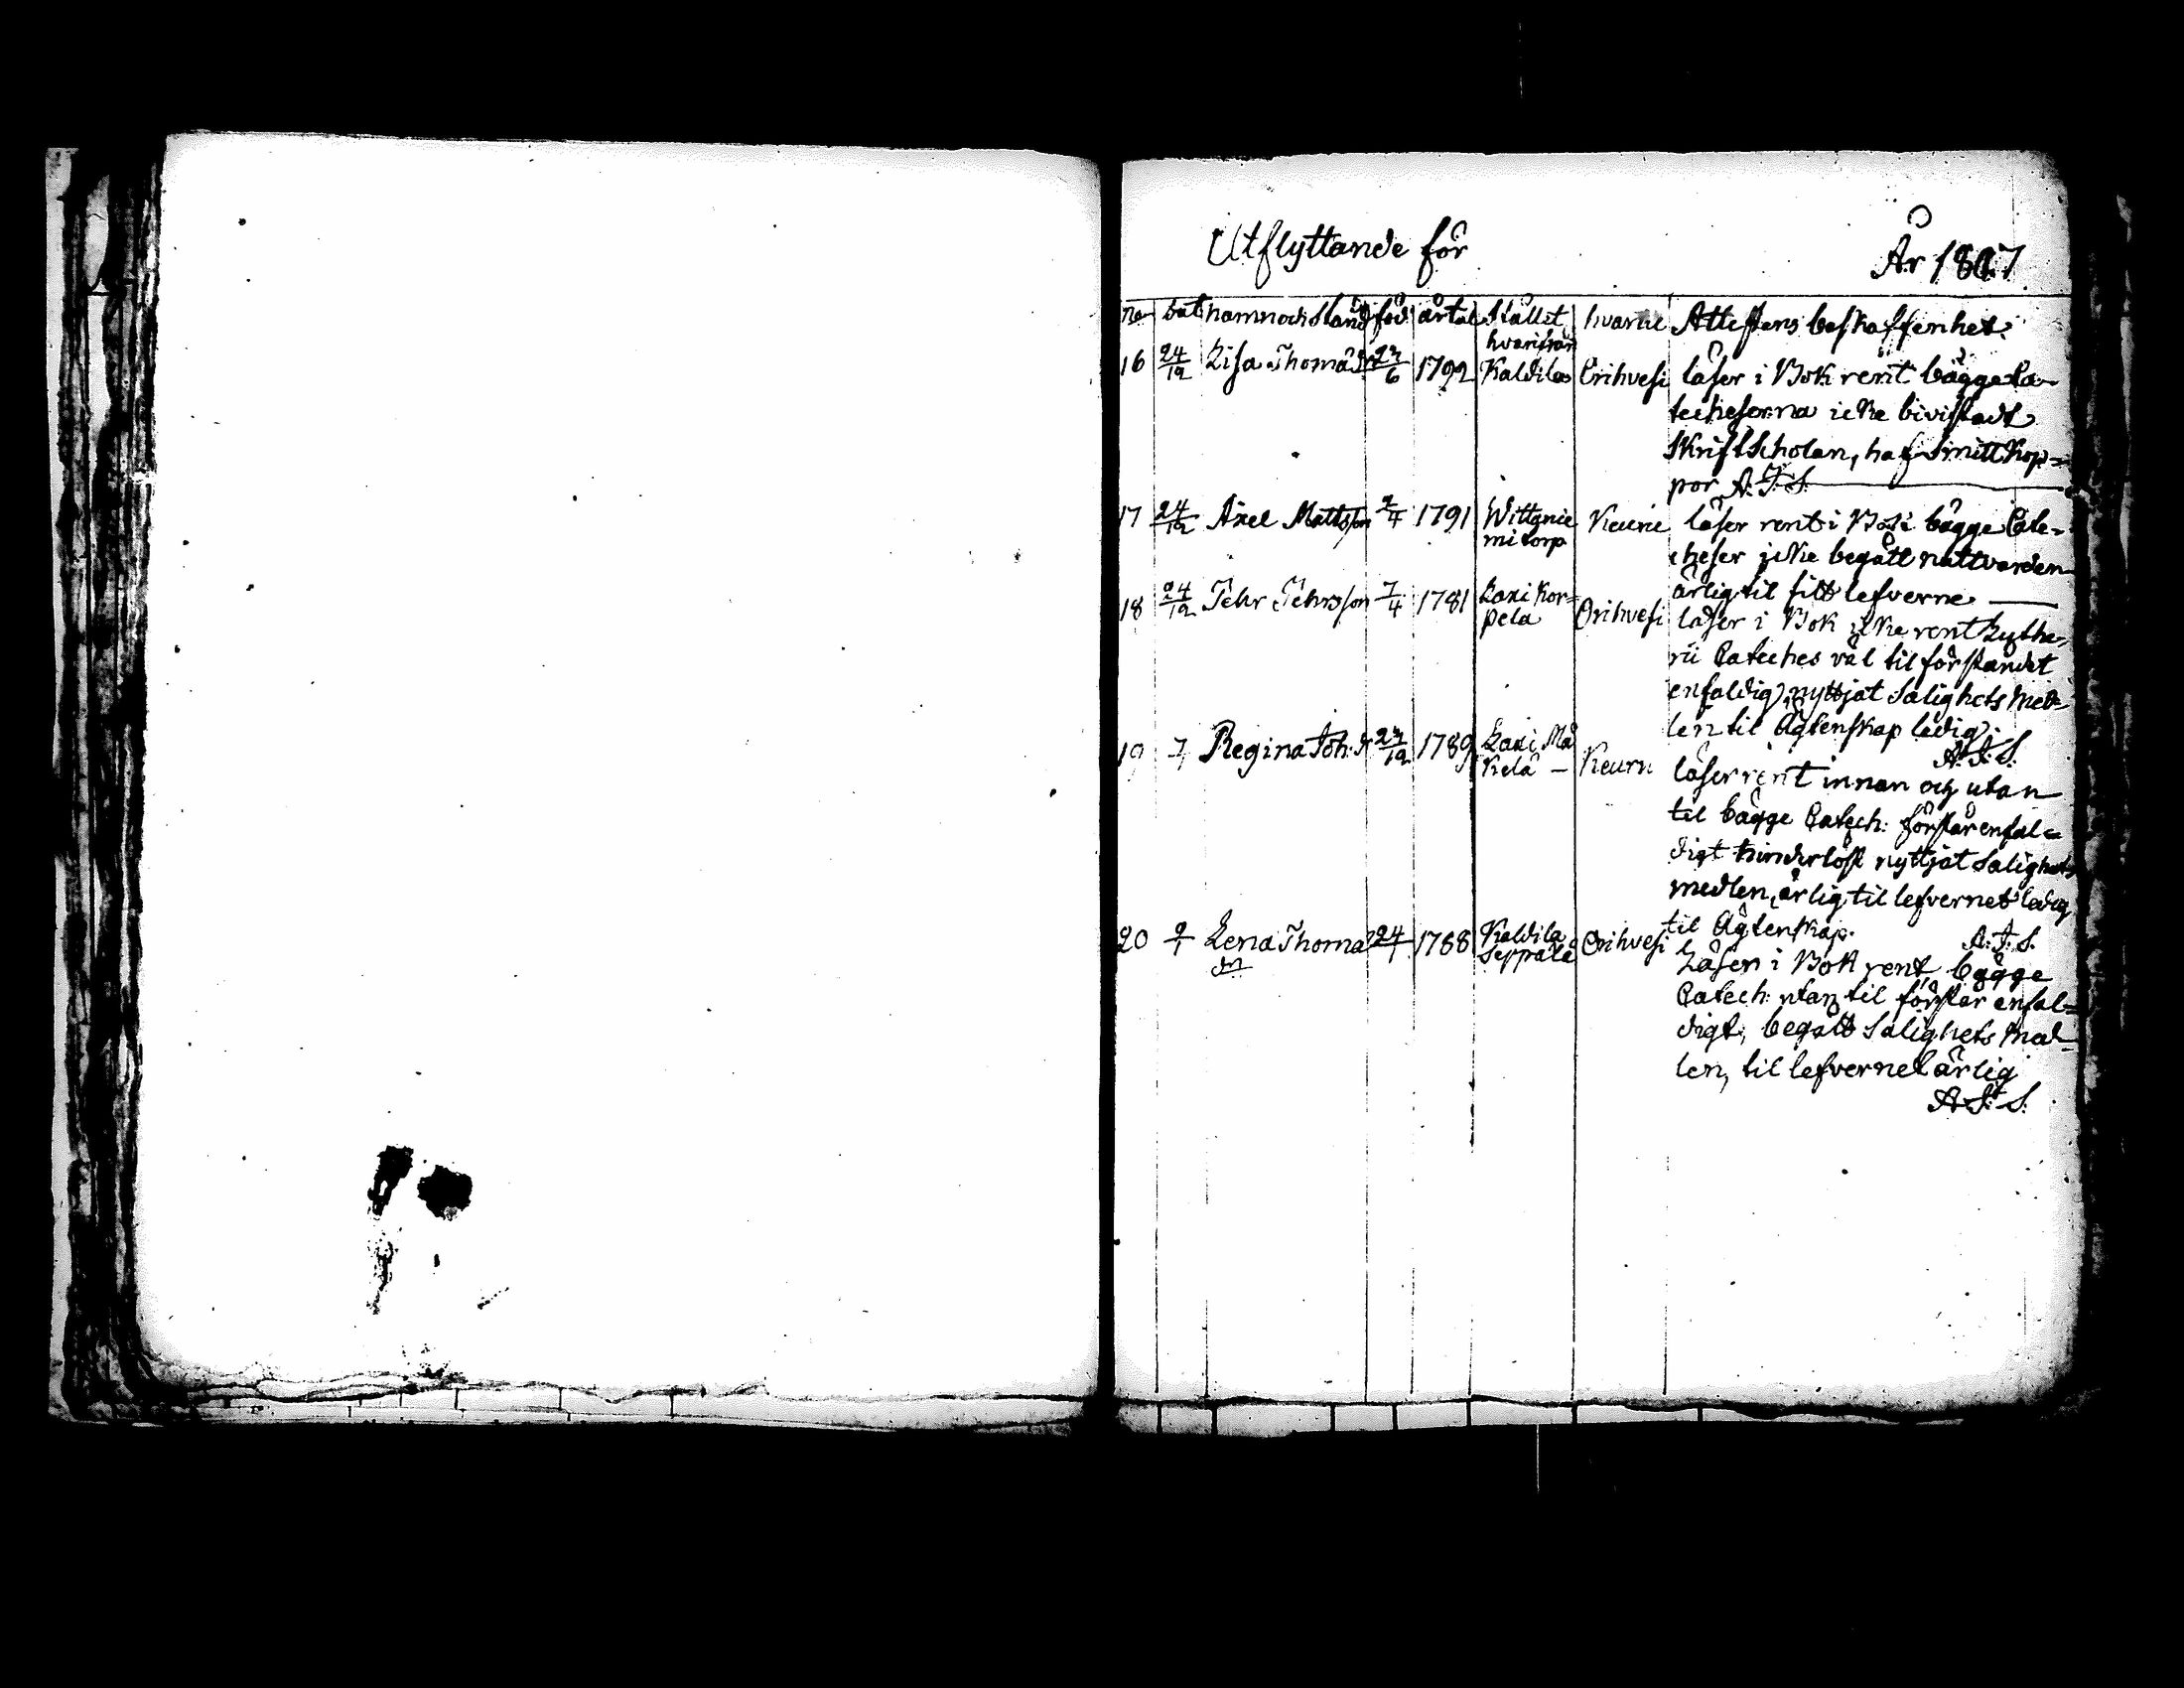 Utflyttande för
År 1807
no dat namn och stånd föd årtal Stället hvarifrån hvartil Attestens beskaffenhet
16 24/12 Lisa Thomæ dr 23/6 1792 Kaldila Orihvesi läser i Bok rent bägge Ca-
techeserna icke bivistadt
Skriftscholan, haf. smitt kop-
por A. J. S.
17 24/12 Axel Mattsson 2/4 1791 Keuru läser rent i Bok bägge Cate-
cheser icke begått nattvarden
ärlig til sitt lefverne
18 24/12 Pehr Pehrsson 7/4 1781 Laxi Kor-
pela Orihvesi läser i Bok icke rent Luthe-
rii Cateches väl til förståndet
enfaldig, nyttjat Salighets Med-
len til Ägtenskap ledig:
A. J. S.
19 7/1 Regina Joh: dr 23/12 1789 Laxi Mä
kelä Keuru läser rent innan och utan
til bägge Catech: förstår enfal-
digt hinderlöst nyttjat Salighets
medlen, ärlig til lefvernet ledig
til Ägtenskap. A. J. S.
20 9/1 Lena Thomæ dr 24/1 1788 Kaldila
Seppälä Orihvesi Läser i Bok rent, bägge
Catech: utan til förstår enfal-
digt, begått Salighets Med-
len, til lefvernet ärlig
A. J. S.